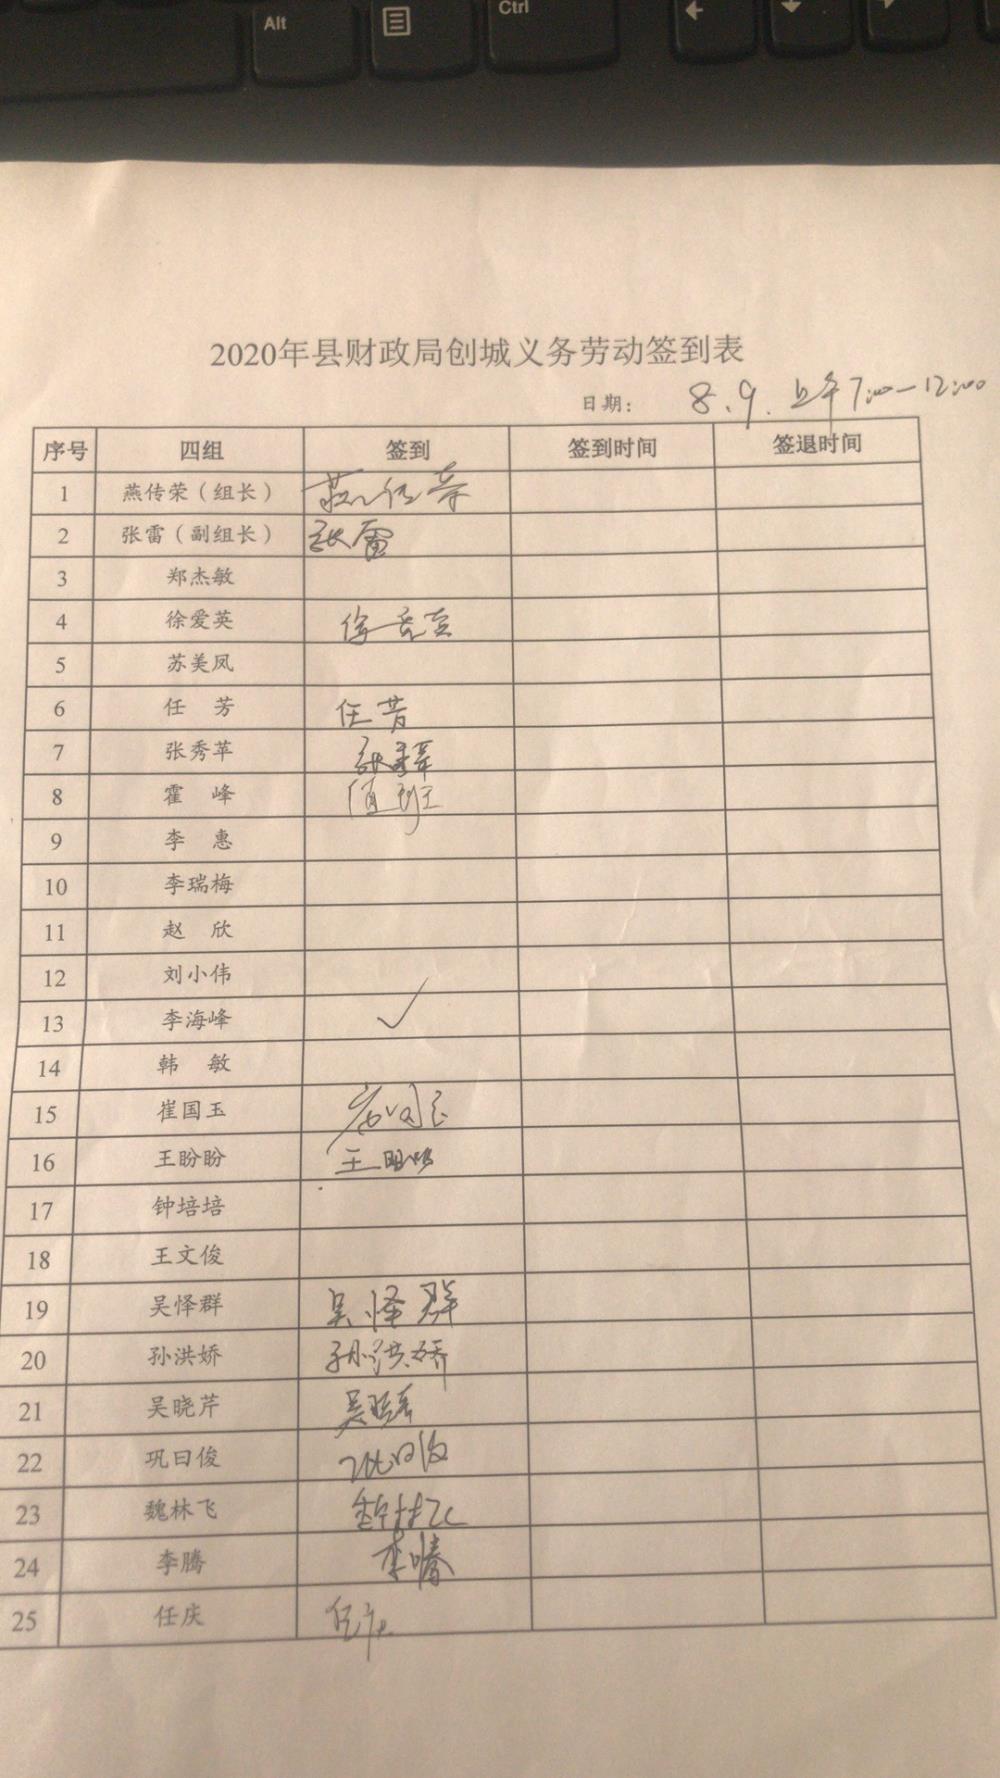 Alt
Ctrl
2020年县财政局创城义务劳动签到表
日期： 8.9. 上午7:00-12:00
序号 四组 签到 签到时间 签退时间
1 燕传荣（组长） 燕传荣
2 张雷（副组长） 张雷
3 郑杰敏
4 徐爱英 徐爱英
5 苏美凤
6 任 芳 任芳
7 张秀苹 张秀苹
8 霍 峰 值班
9 李 惠
10 李瑞梅
11 赵 欣
12 刘小伟
13 李海峰 ✓
14 韩 敏
15 崔国玉 崔国玉
16 王盼盼 王盼盼
17 钟培培
18 王文俊
19 吴怿群 吴怿群
20 孙洪娇 孙洪娇
21 吴晓芹 吴晓芹
22 巩曰俊 巩曰俊
23 魏林飞
24 李腾 李腾
25 任庆 任庆